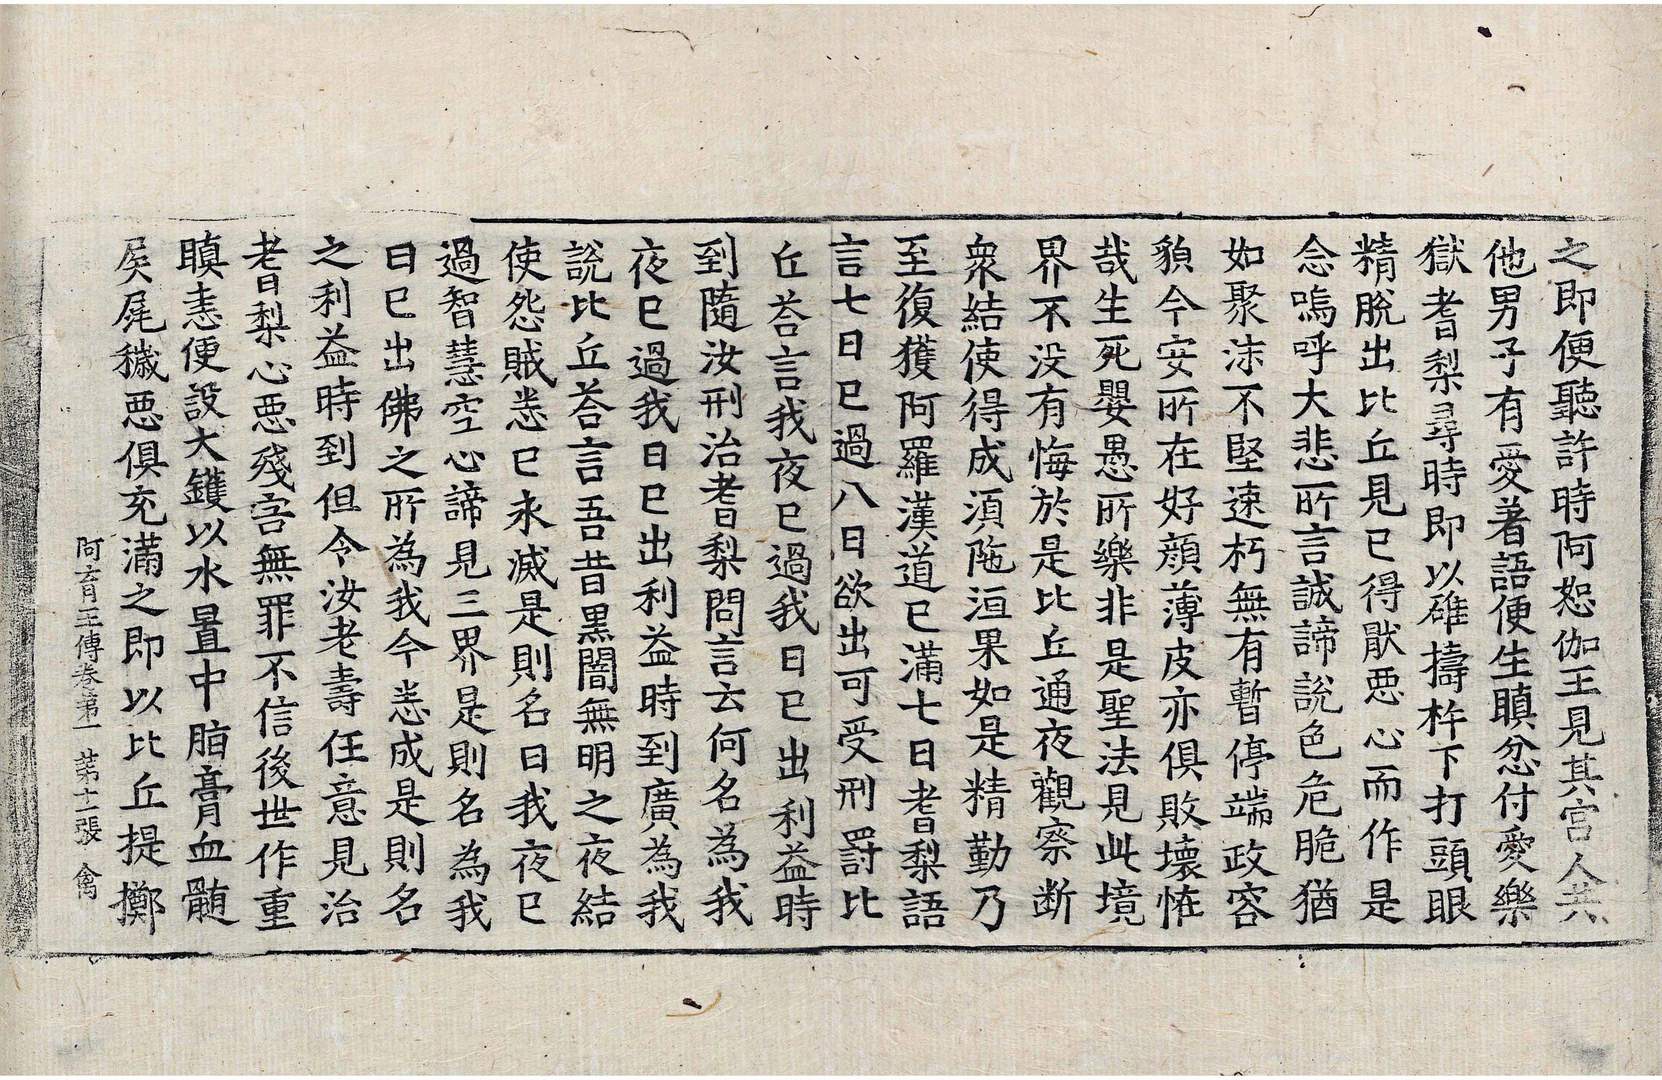 之即便聽許時阿恕伽王見其宮人共
他男子有愛著語便生瞋忿付愛樂
獄耆梨尋時即以碓擣杵下打頭眼
精脫出比丘見已得猒惡心而作是
念嗚呼大悲所言誠諦說色危脆猶
如聚沫不堅速朽無有暫停端政容
貌今安所在好顏薄皮亦俱敗壞恠
哉生死嬰愚所樂非是聖法見此境
界不没有悔於是比丘通夜觀察断
衆結使得成湏陁洹果如是精勤乃
至復獲阿羅漢道已滿七日耆梨語
言七日已過八日欲出可受刑罸比
丘荅言我夜已過我日已出利益時
到隨汝刑治耆梨問言云何名為我
夜已過我日已出利益時到廣為我
說比丘荅言吾昔黑闇無明之夜結
使怨賊悉已永滅是則名曰我夜已
過智慧空心諦見三界是則名為我
日已出佛之所為我今悉成是則名
之利益時到但令汝老壽任意見治
耆梨心惡殘害無罪不信後世作重
瞋恚便設大鑊以水置中脂膏血髓
屎尾穢惡俱充滿之即以比丘提擲
阿育王傳卷第一 苐十一張 禽